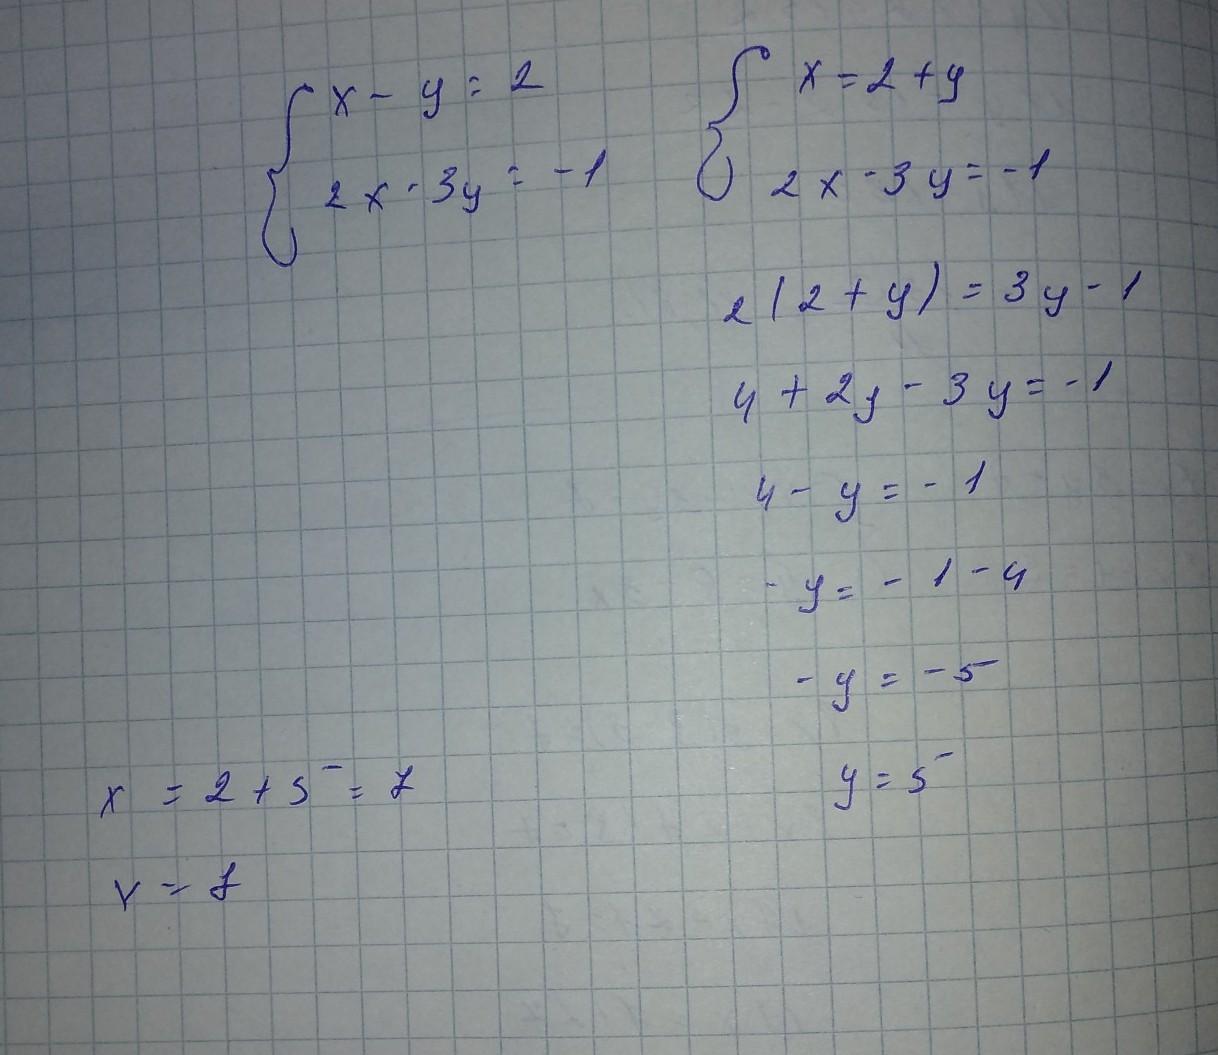 x - y = 2
2x - 3y = -1
x = 2 + y
2x - 3y = -1
2(2 + y) = 3y - 1
4 + 2y - 3y = -1
4 - y = - 1
- y = - 1 - 4
- y = - 5
y = 5
x = 2 + 5 = 7
x = 7